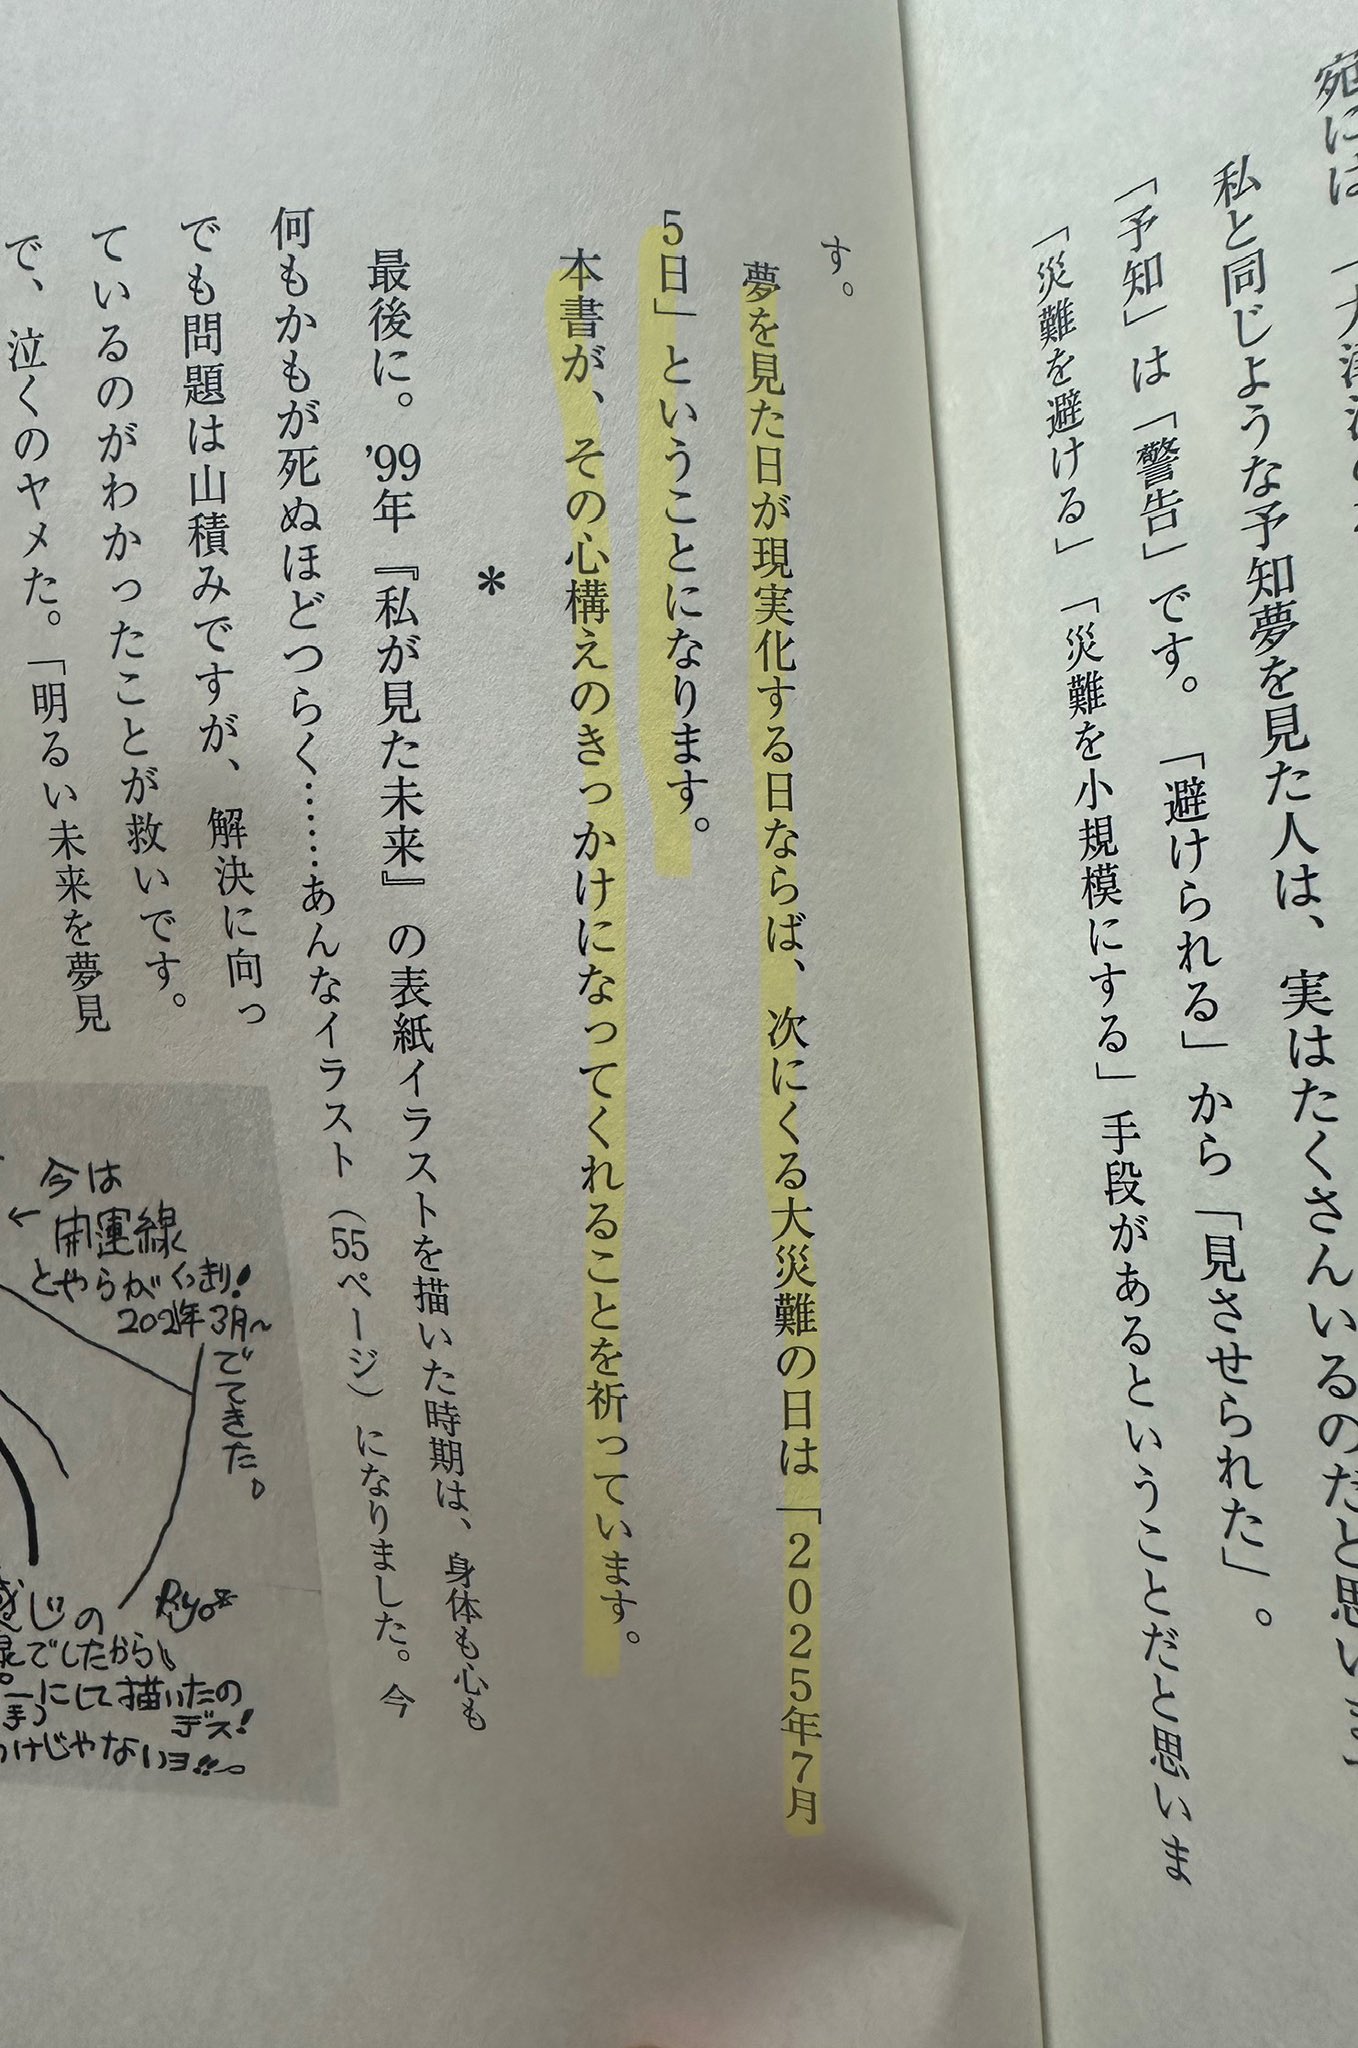 宛には「大津
私と同じような予知夢を見た人は、実はたくさんいるのだと思いま
「予知」は「警告」です。「避けられる」から「見させられた」。
「災難を避ける」「災難を小規模にする」手段があるということだと思いま
す。
夢を見た日が現実化する日ならば、次にくる大災難の日は「2025年7月
5日」ということになります。
本書が、その心構えのきっかけになってくれることを祈っています。
＊
最後に。'99年『私が見た未来』の表紙イラストを描いた時期は、身体も心も
何もかもが死ぬほどつらく……あんなイラスト（55ページ）になりました。今
でも問題は山積みですが、解決に向っ
ているのがわかったことが救いです。
で、泣くのヤメた。「明るい未来を夢見
今は
← 開運線
とやらがくっきり!
2021年3月～
でてきた。
Ryo*
感じの
でしたから
にして描いたの
デス!
けじゃないヨ!!